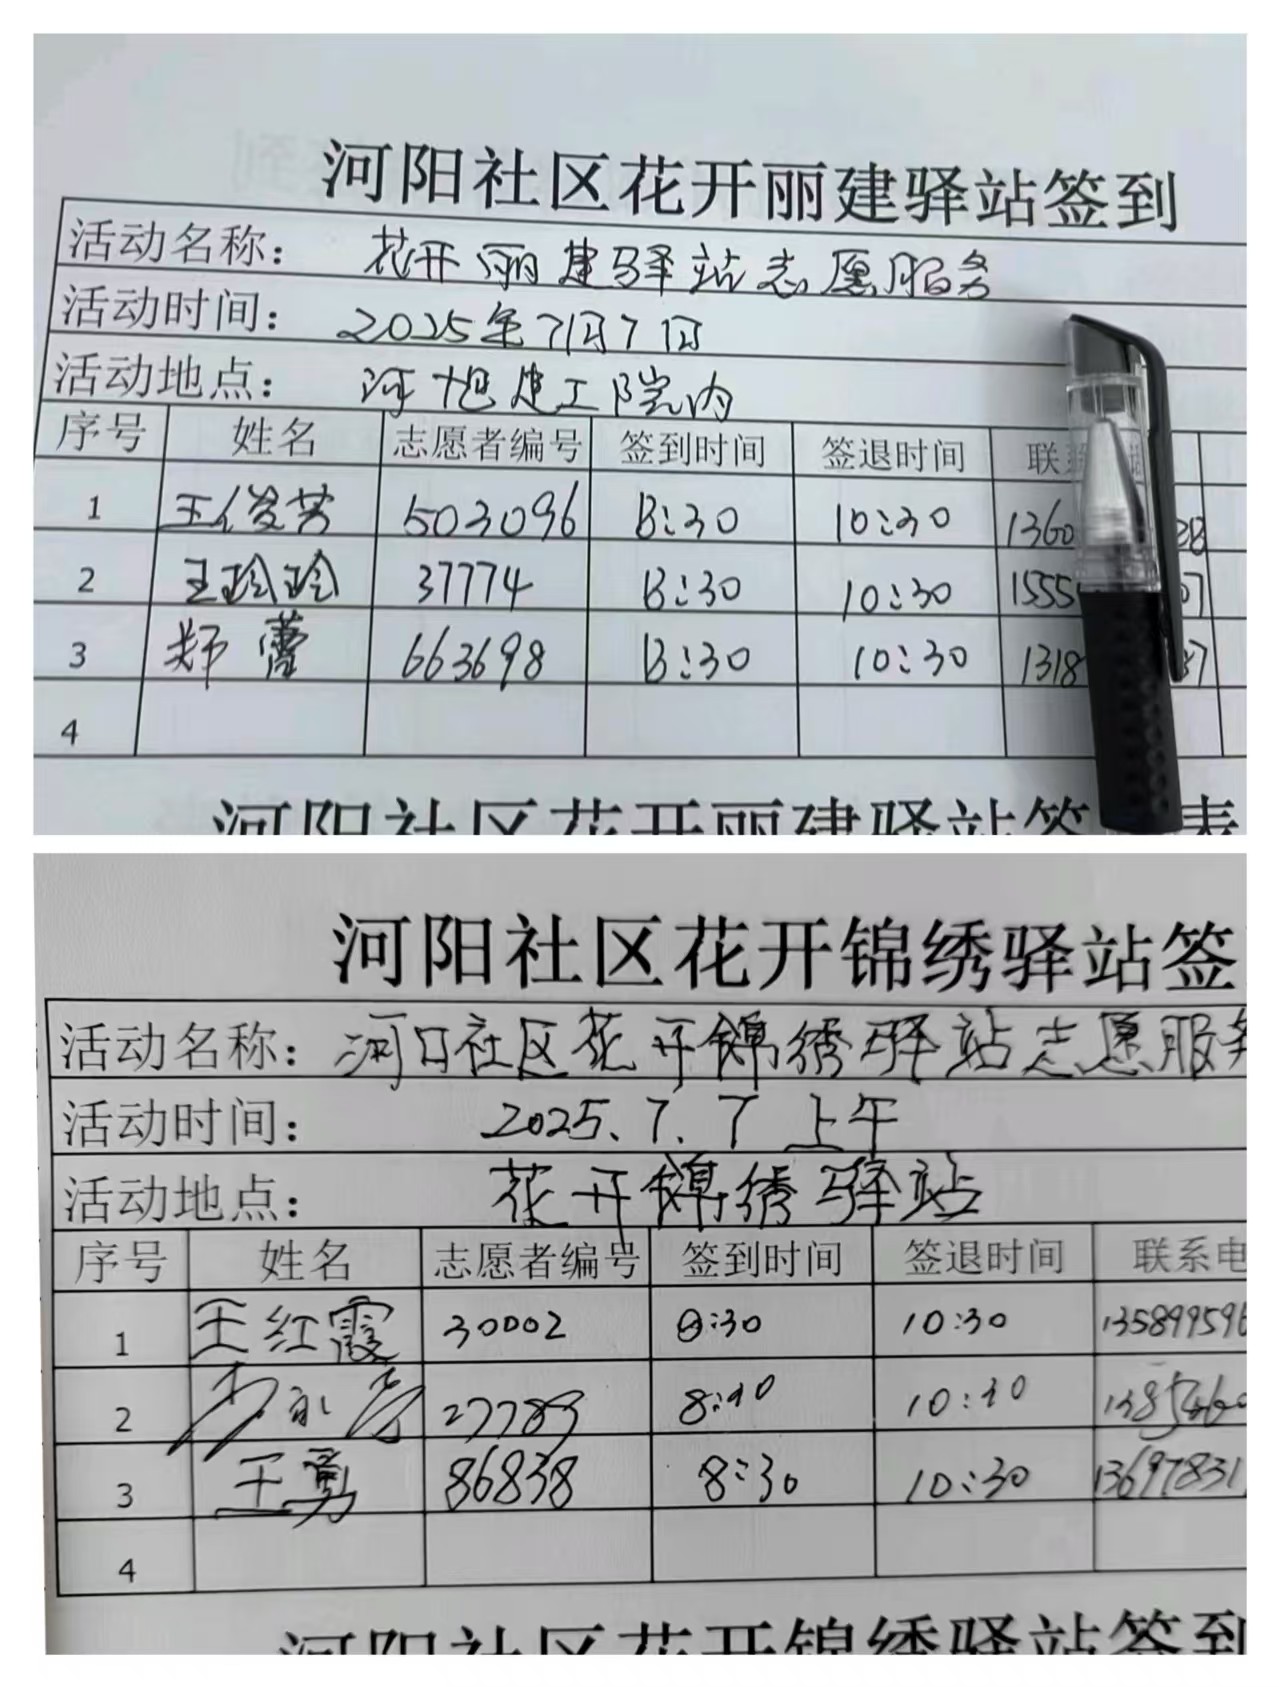 河阳社区花开丽建驿站签到
活动名称： 花开丽建驿站志愿服务
活动时间： 2025年7月7日
活动地点： 河旭建工院内
序号 姓名 志愿者编号 签到时间 签退时间 联系
1 王俊芳 503096 8:30 10:30 1360 28
2 王玲玲 37774 8:30 10:30 1555 07
3 郑蕾 663698 8:30 10:30 1318 37
4
河阳社区花开丽建驿站签 表
河阳社区花开锦绣驿站签
活动名称： 河口社区花开锦绣驿站志愿服务
活动时间： 2025.7.7 上午
活动地点： 花开锦绣驿站
序号 姓名 志愿者编号 签到时间 签退时间 联系电
1 王红霞 30002 8:30 10:30 135899596
2 27789
3 王勇 86838 8:30 10:30 13697831
4
河阳社区花开锦绣驿站签到